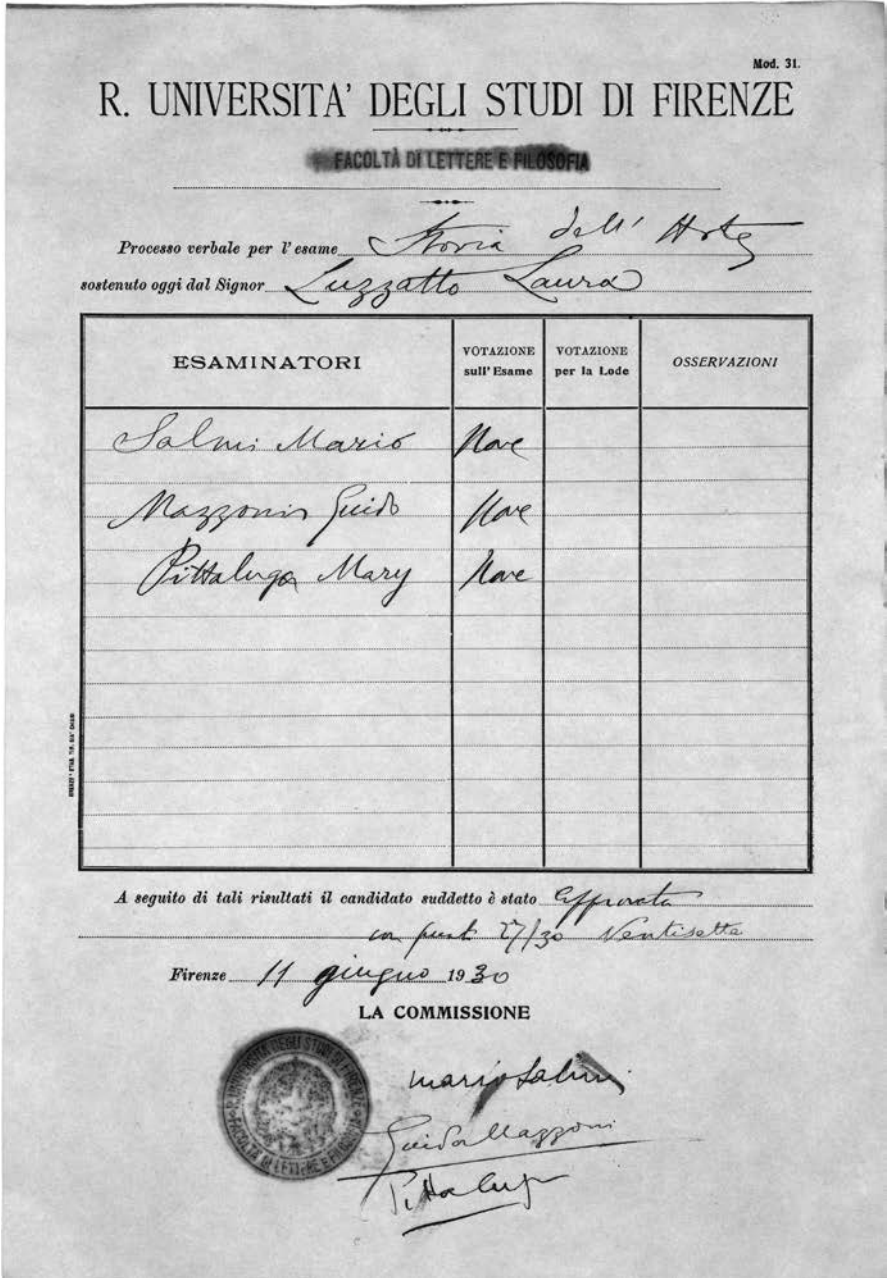 Mod. 31.
R. UNIVERSITA' DEGLI STUDI DI FIRENZE
FACOLTÀ DI LETTERE E FILOSOFIA
Processo verbale per l'esame Storia dell'Arte
sostenuto oggi dal Signor Luzzatto Laura
ESAMINATORI VOTAZIONE sull'Esame VOTAZIONE per la Lode OSSERVAZIONI
Salmi Mario Nove
Mazzoni Guido Nove
Pittaluga Mary Nove
A seguito di tali risultati il candidato suddetto è stato approvata
con punti 27/30 Ventisette
Firenze 11 giugno 1930
LA COMMISSIONE
Mario Salmi
Guido Mazzoni
Pittaluga
R. UNIVERSITÀ DEGLI STUDI DI FIRENZE
FACOLTÀ DI LETTERE E FILOSOFIA